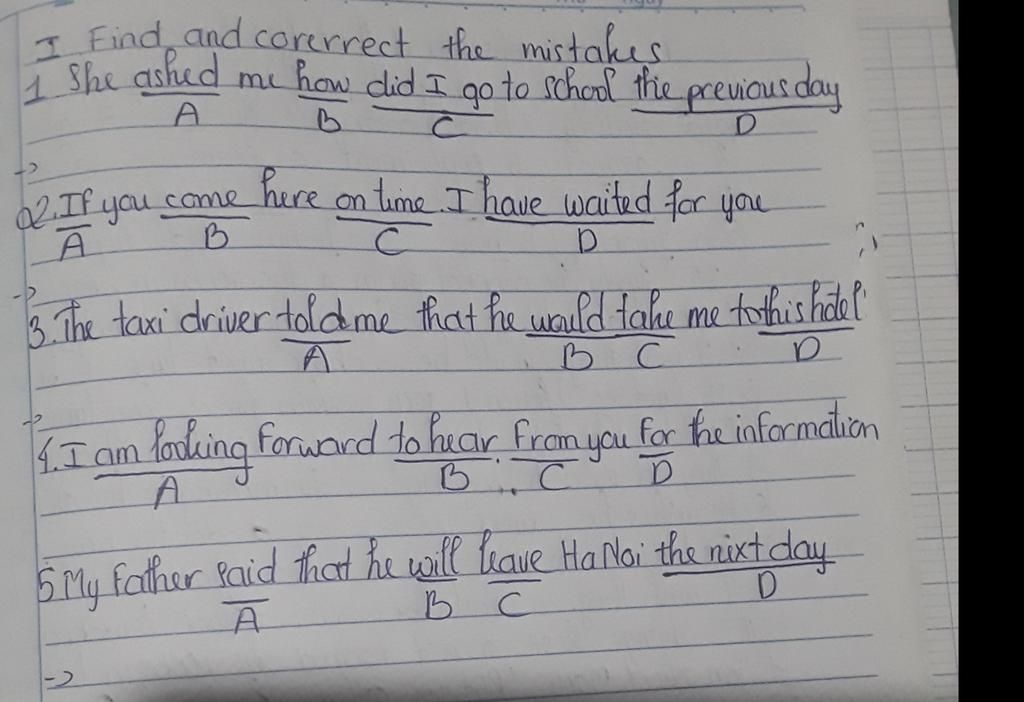 I Find and corerrect the mistakes
1 She asked me how did I go to school the previous day
A B C D
->
2. If you come here on time. I have waited for you
A B C D
->
3. The taxi driver told me that he would take me to this hotel
A B C D
->
4. I am looking forward to hear from you for the information
A B C D
5 My father said that he will leave Ha Noi the nixt day
A B C D
->